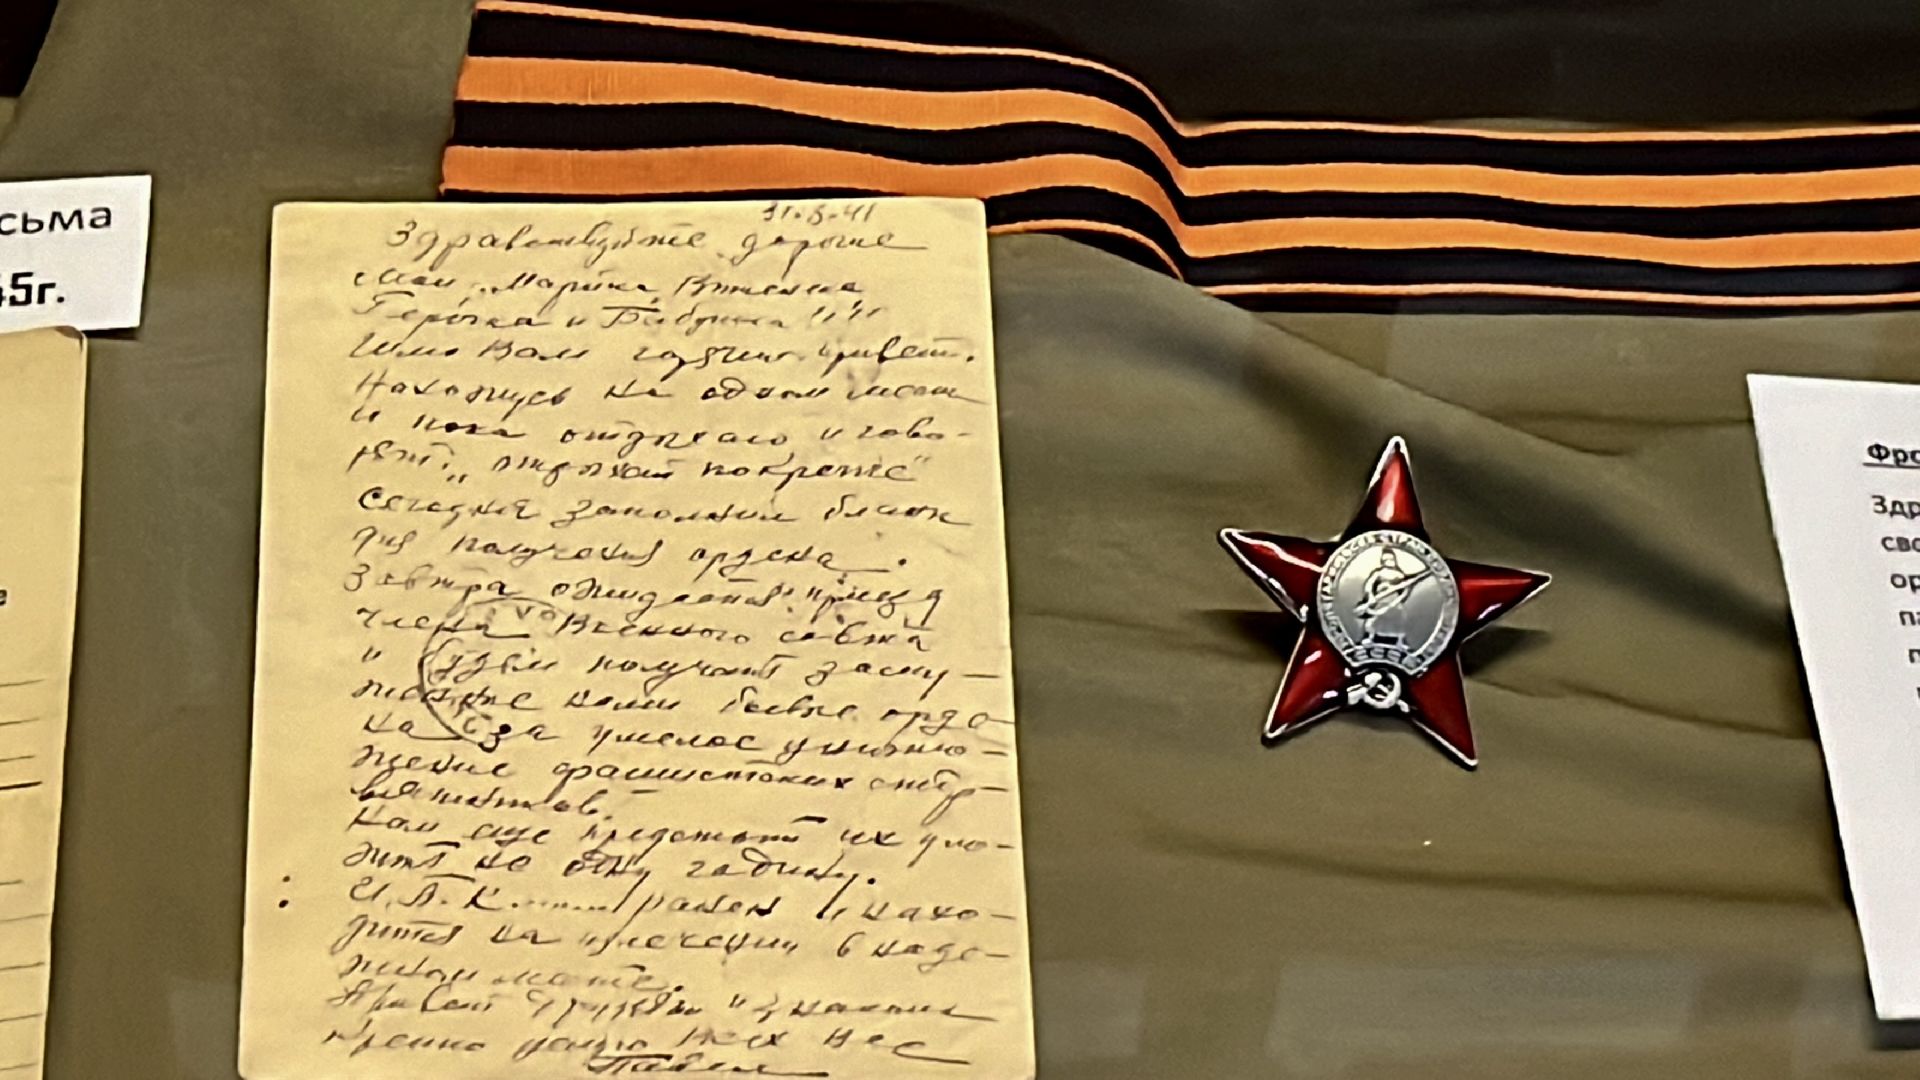 сьма
45г.
31.8.41
Здравствуйте дорогие
мои, Марина, Витенька
Герочка и Бабушка!!!
Шлю Вам горячий привет.
Нахожусь на одном месте
и пока отдыхаю и гово-
рят: „отдыхай покрепче"
Сегодня заполнил бланк
для получения ордена.
Завтра ожидается приезд
члена Военного совета
и будем получать заслу-
женные нами боевые орде
на за умелое уничто-
жение фашистских стер-
вятников.
Нам еще предстоит их уло-
жить не одну гадину.
И.П. ранен и нахо-
дится на излечении в наде-
жном месте.
Привет друзьям и знакомым
Крепко целую Всех Вас
Павел
Фро
Здр
сво
ор
па
п
е
СССР